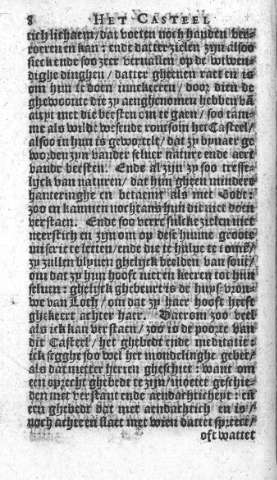 8 HET CASTEEL
rich lichaem/ dat voeten noch handen ver-
roeren en kan: ende datter zielen zijn alsoo
sieck ende soo zeer vervallen op de wtwen-
dighe dinghen/ datter gheenen raet en is
om hun te doen innekeeren/ door dien de
ghewoonte die zy aenghenomen hebben vã
altijt met die beesten om te gaen/ soo tam-
me als wilde wesende rontsom het Casteel/
alsoo in hun is gewortelt/ dat zy bynaer ge
worden zijn vander selver nature ende aert
vande beesten. Ende al zijn zy soo treffe-
lijck van naturen/ dat hun gheen mindere
hanteringhe en betaemt als met Godt:
zoo en kannen nochtans hun dit niet doen
verstaen. Ende soo verre sulcke zielen niet
neerstich en zijn om op dese hunne groote
miserie te letten/ ende die te hulpe te comẽ/
zy zullen blyven ghelijck beelden van sout/
om dat zy hun hooft niet en keeren tot hun
selven: ghelijck ghebeurt is de huysvrou-
we van Loth/ om dat zy haer hooft heeft
ghekeert achter haer. Daerom zoo veel
als ick kan verstaen/ zoo is de poorte van
dit Casteel/ het ghebedt ende meditatie:
ick segghe soo wel het mondelinghe gebet/
als dat metter herten gheschiet: want om
een oprecht ghebedt te zijn/ moetet geschie-
den met verstant ende aendachticheyt: en
een ghebedt dat niet aendachtich en is/
noch acht en slaet met wien dattet spreect/
oft wattet